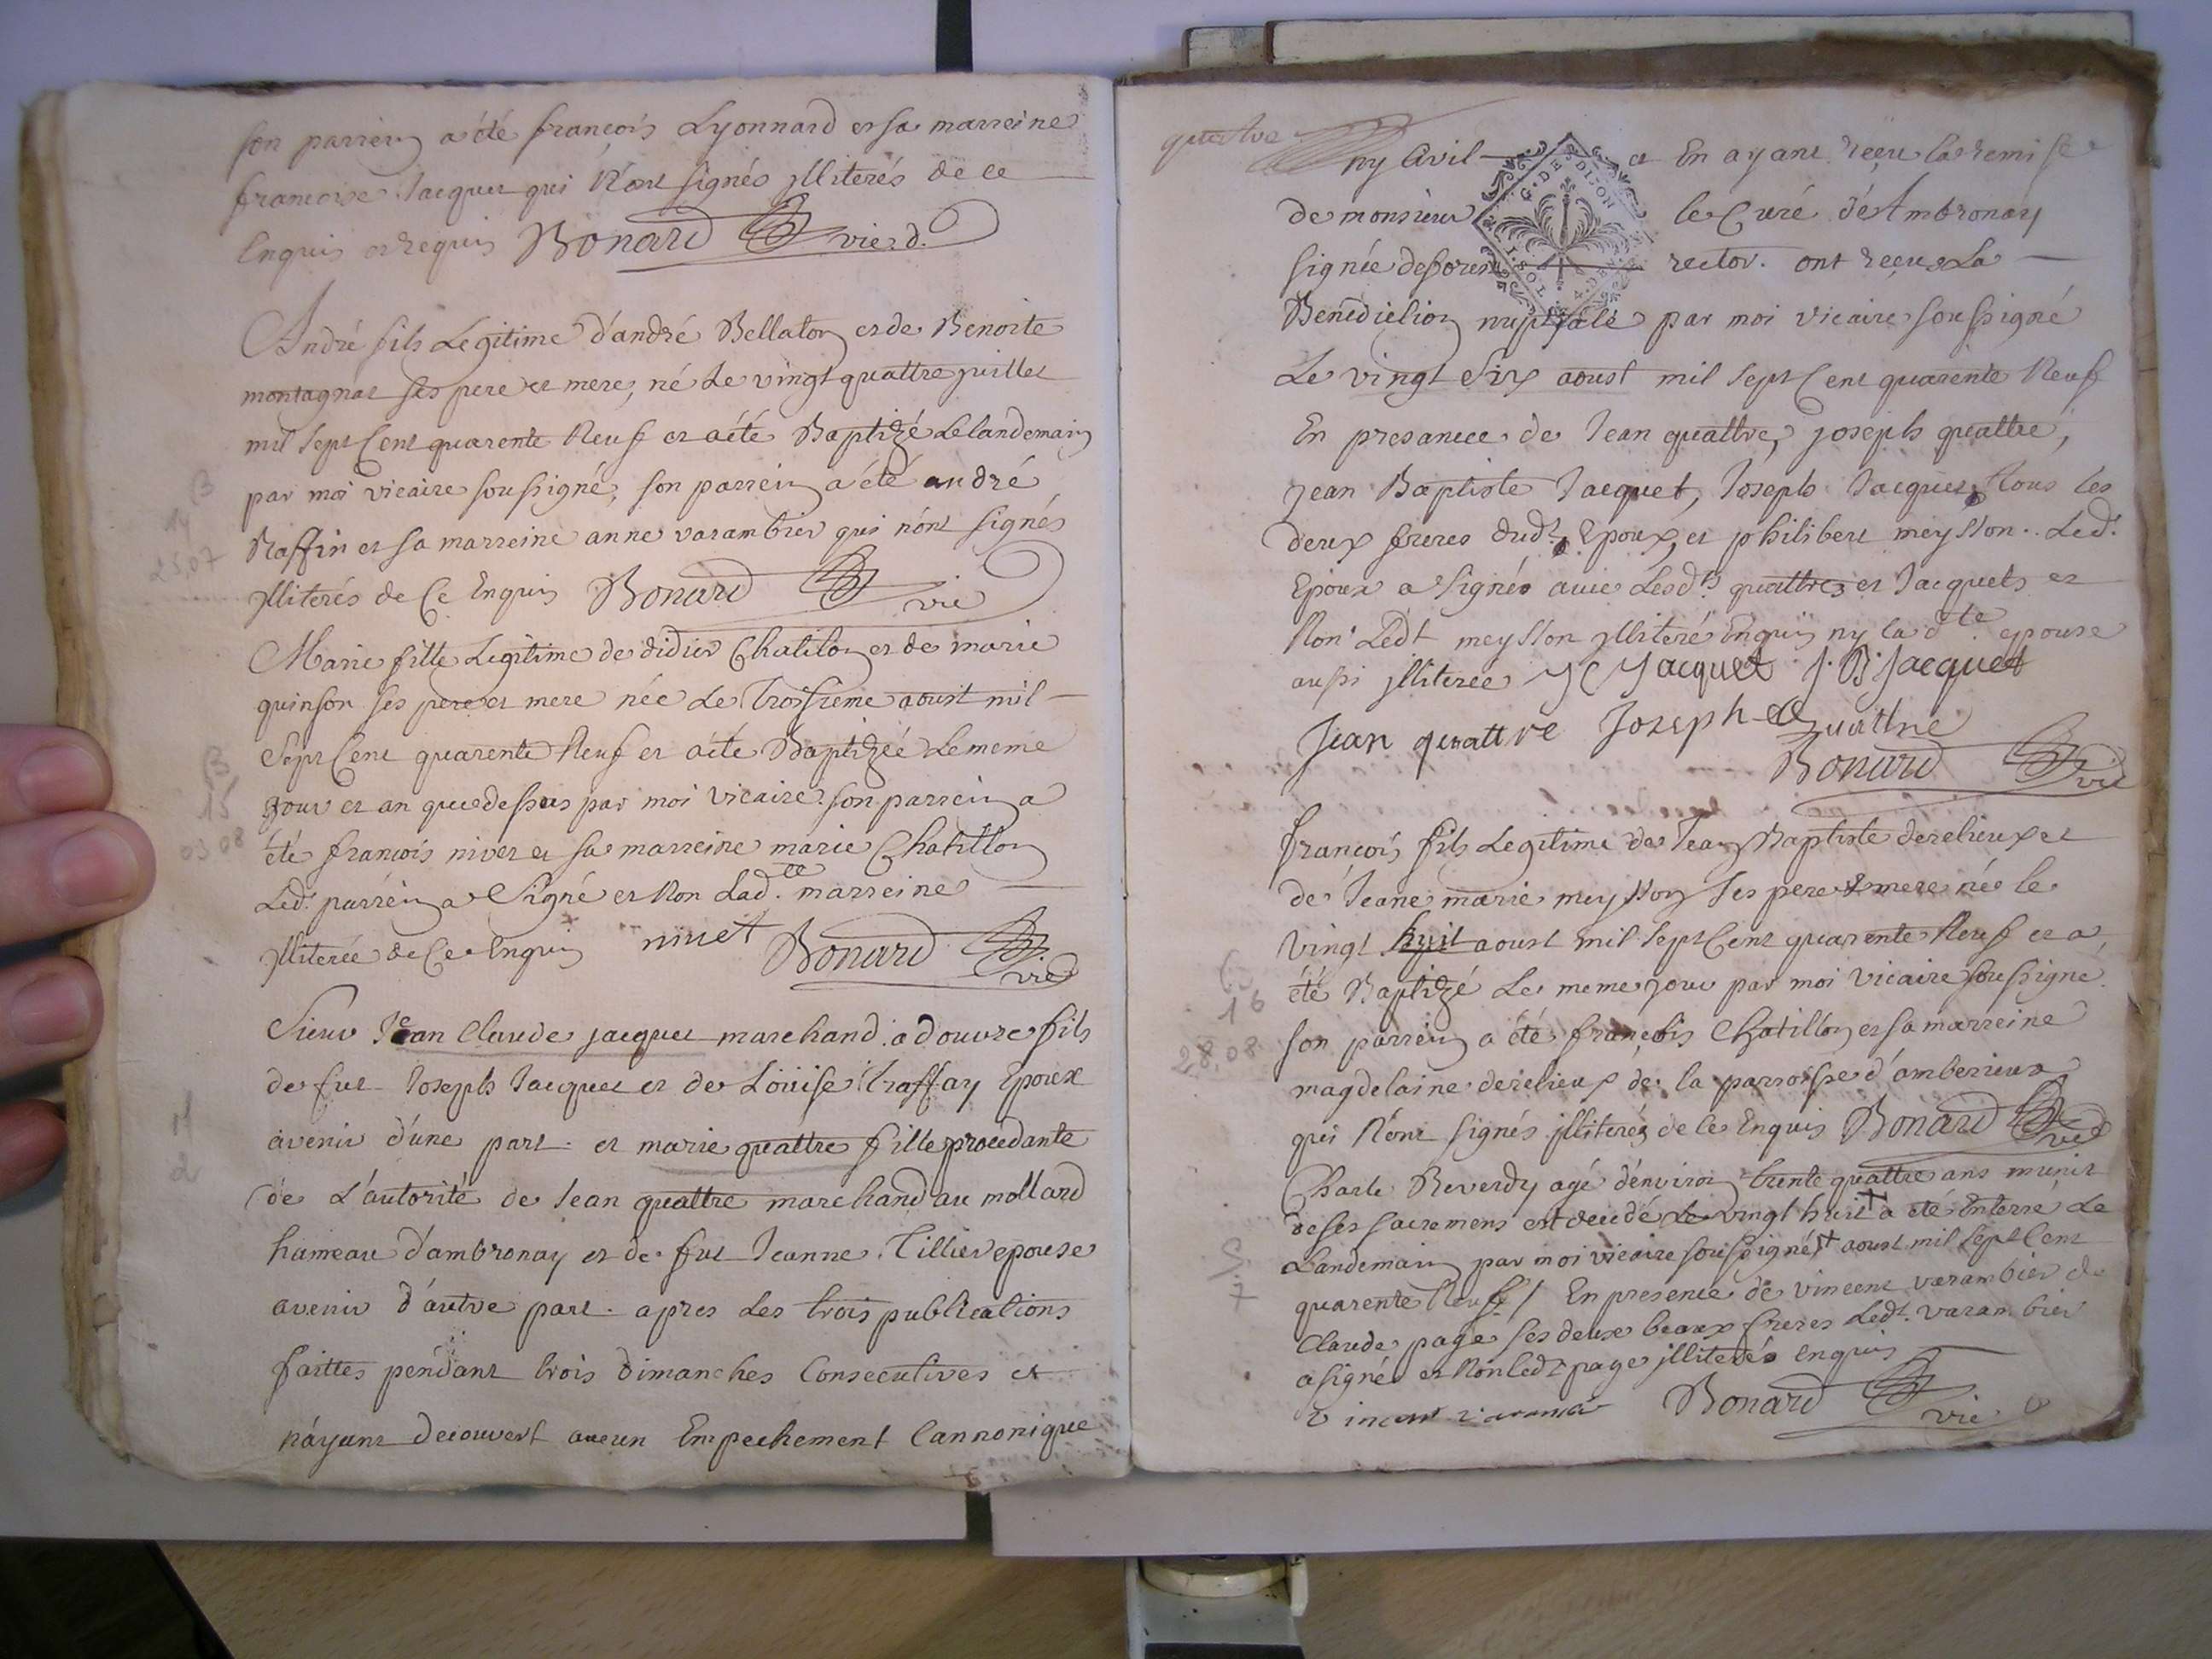 son parrein a été françois Lyonnard et sa marreine
francoise Jacquet qui n'ont signés jlliterés de ce
Enquis et requis Bonard vic. d.
André fils Legitime d'andré Bellaton et de Benoite
montagnat ses pere et mere, né Le vingt quattre juillet
mil sept Cent quarente Neuf et a été Baptizé Le landemain
par moi vicaire soussigné, son parrein a été andré
Raffin et sa marreine anne varambier qui n'ont signés
jlliterés de Ce Enquis Bonard vic
B
14
25.07
Marie fille Legitime de didier Chatillon et de marie
quinson ses pere et mere née Le Troisieme aoust mil
Sept Cent quarente Neuf et a été Baptizée Le meme
jour et an que dessus par moi vicaire son parrein a
été françois nivet et sa marreine marie Chatillon
Led. parrein a Signé et Non Lad.te marreine
jlliterée de Ce Enquis nivet Bonard vic
B
15
03 08
Sieur Jean Claude jacquet marchand a douvre fils
de fut Joseph Jacquet et de Loüise traffay Epoux
avenir d'une part. et marie quattre fille procedante
de L'autorité de Jean quattre marchand au mollard
hameau d'ambronay et de fut Jeanne Tillier epouse
avenir d'autre part. apres Les trois publications
faittes pendant trois dimanches Consecutives et
n'ayant decouvert aucun Empechement Cannonique
2
quattre
ny Civil et En ayant reçeu la remise
de monsieur le Curé d'Ambronay
signée desores rector. ont reçeus La
Benediction nuptiale par moi vicaire soussigné
Le vingt Six aoust mil Sept Cent quarente Neuf
En presance de Jean quattre, joseph quattre,
jean Baptiste Jacquet, Joseph Jacquet, tous les
deux freres dud.t Epoux, et philibert meysson. Led.t
Epoux a Signés avec Lesd.ts quattres et Jacquets et
Non Led.t meysson jlliteré Enquis ny lad.te epouse
aussi jlliterée J C Jacquet J. B. Jacquet
Jean quattre Joseph Quattre
Bonard vic
François fils Legitime de Jean Baptiste derelieux et
de Jeane marie meysson ses pere et mere née le
vingt huit aoust mil Sept Cent quarente Neuf et a
été Baptizé Le meme jour par moi vicaire soussigné.
son parrein a été françois Chatillon et sa marreine
magdelaine derelieux de la parroisse d'amberieux
qui N'ont signés jlliterés de Ce Enquis Bonard vic
16
28.08
Charle Reverdy agé d'environ trente quattre ans munir
de ses sacremens est decedé Le vingt huit + a été Enterré Le
Landemain par moi vicaire soussigné, + aoust mil Sept Cent
quarente Neuf / En presence de vincent varambier de
Claude page ses deux beaux freres Led.t varambier
a signé et Non Led.t page jlliterés enquis
vincent varambier Bonard vic
S
7
G. DE DIJON